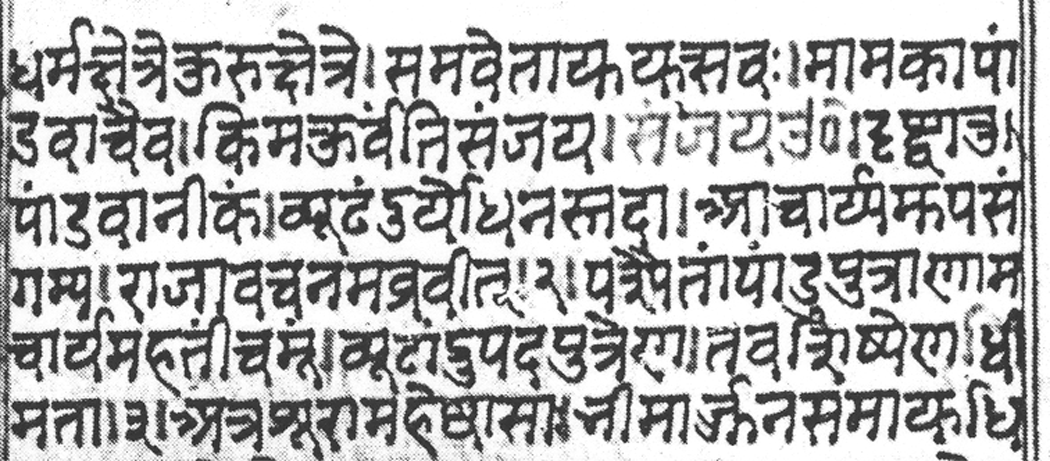 धर्मक्षेत्रेकुरुक्षेत्रे।समवेतायुयुत्सवः।मामकापां
डवाश्चैव।किमकुर्वतिसंजय।संजयउ०।दृष्ट्वातु।
पांडवानीकं।व्यूढंदुर्योधनस्तदा।आचार्यमुपसं
गम्य।राजावचनमब्रवीत्।२।पश्यैतांपांडुपुत्राणाम
चार्यमहतींचमूं।व्यूढांद्रुपदपुत्रेण।तवशिष्येण।धी
मता।३।अत्रशूरामहेष्वासा।भीमार्जुनसमायुधि